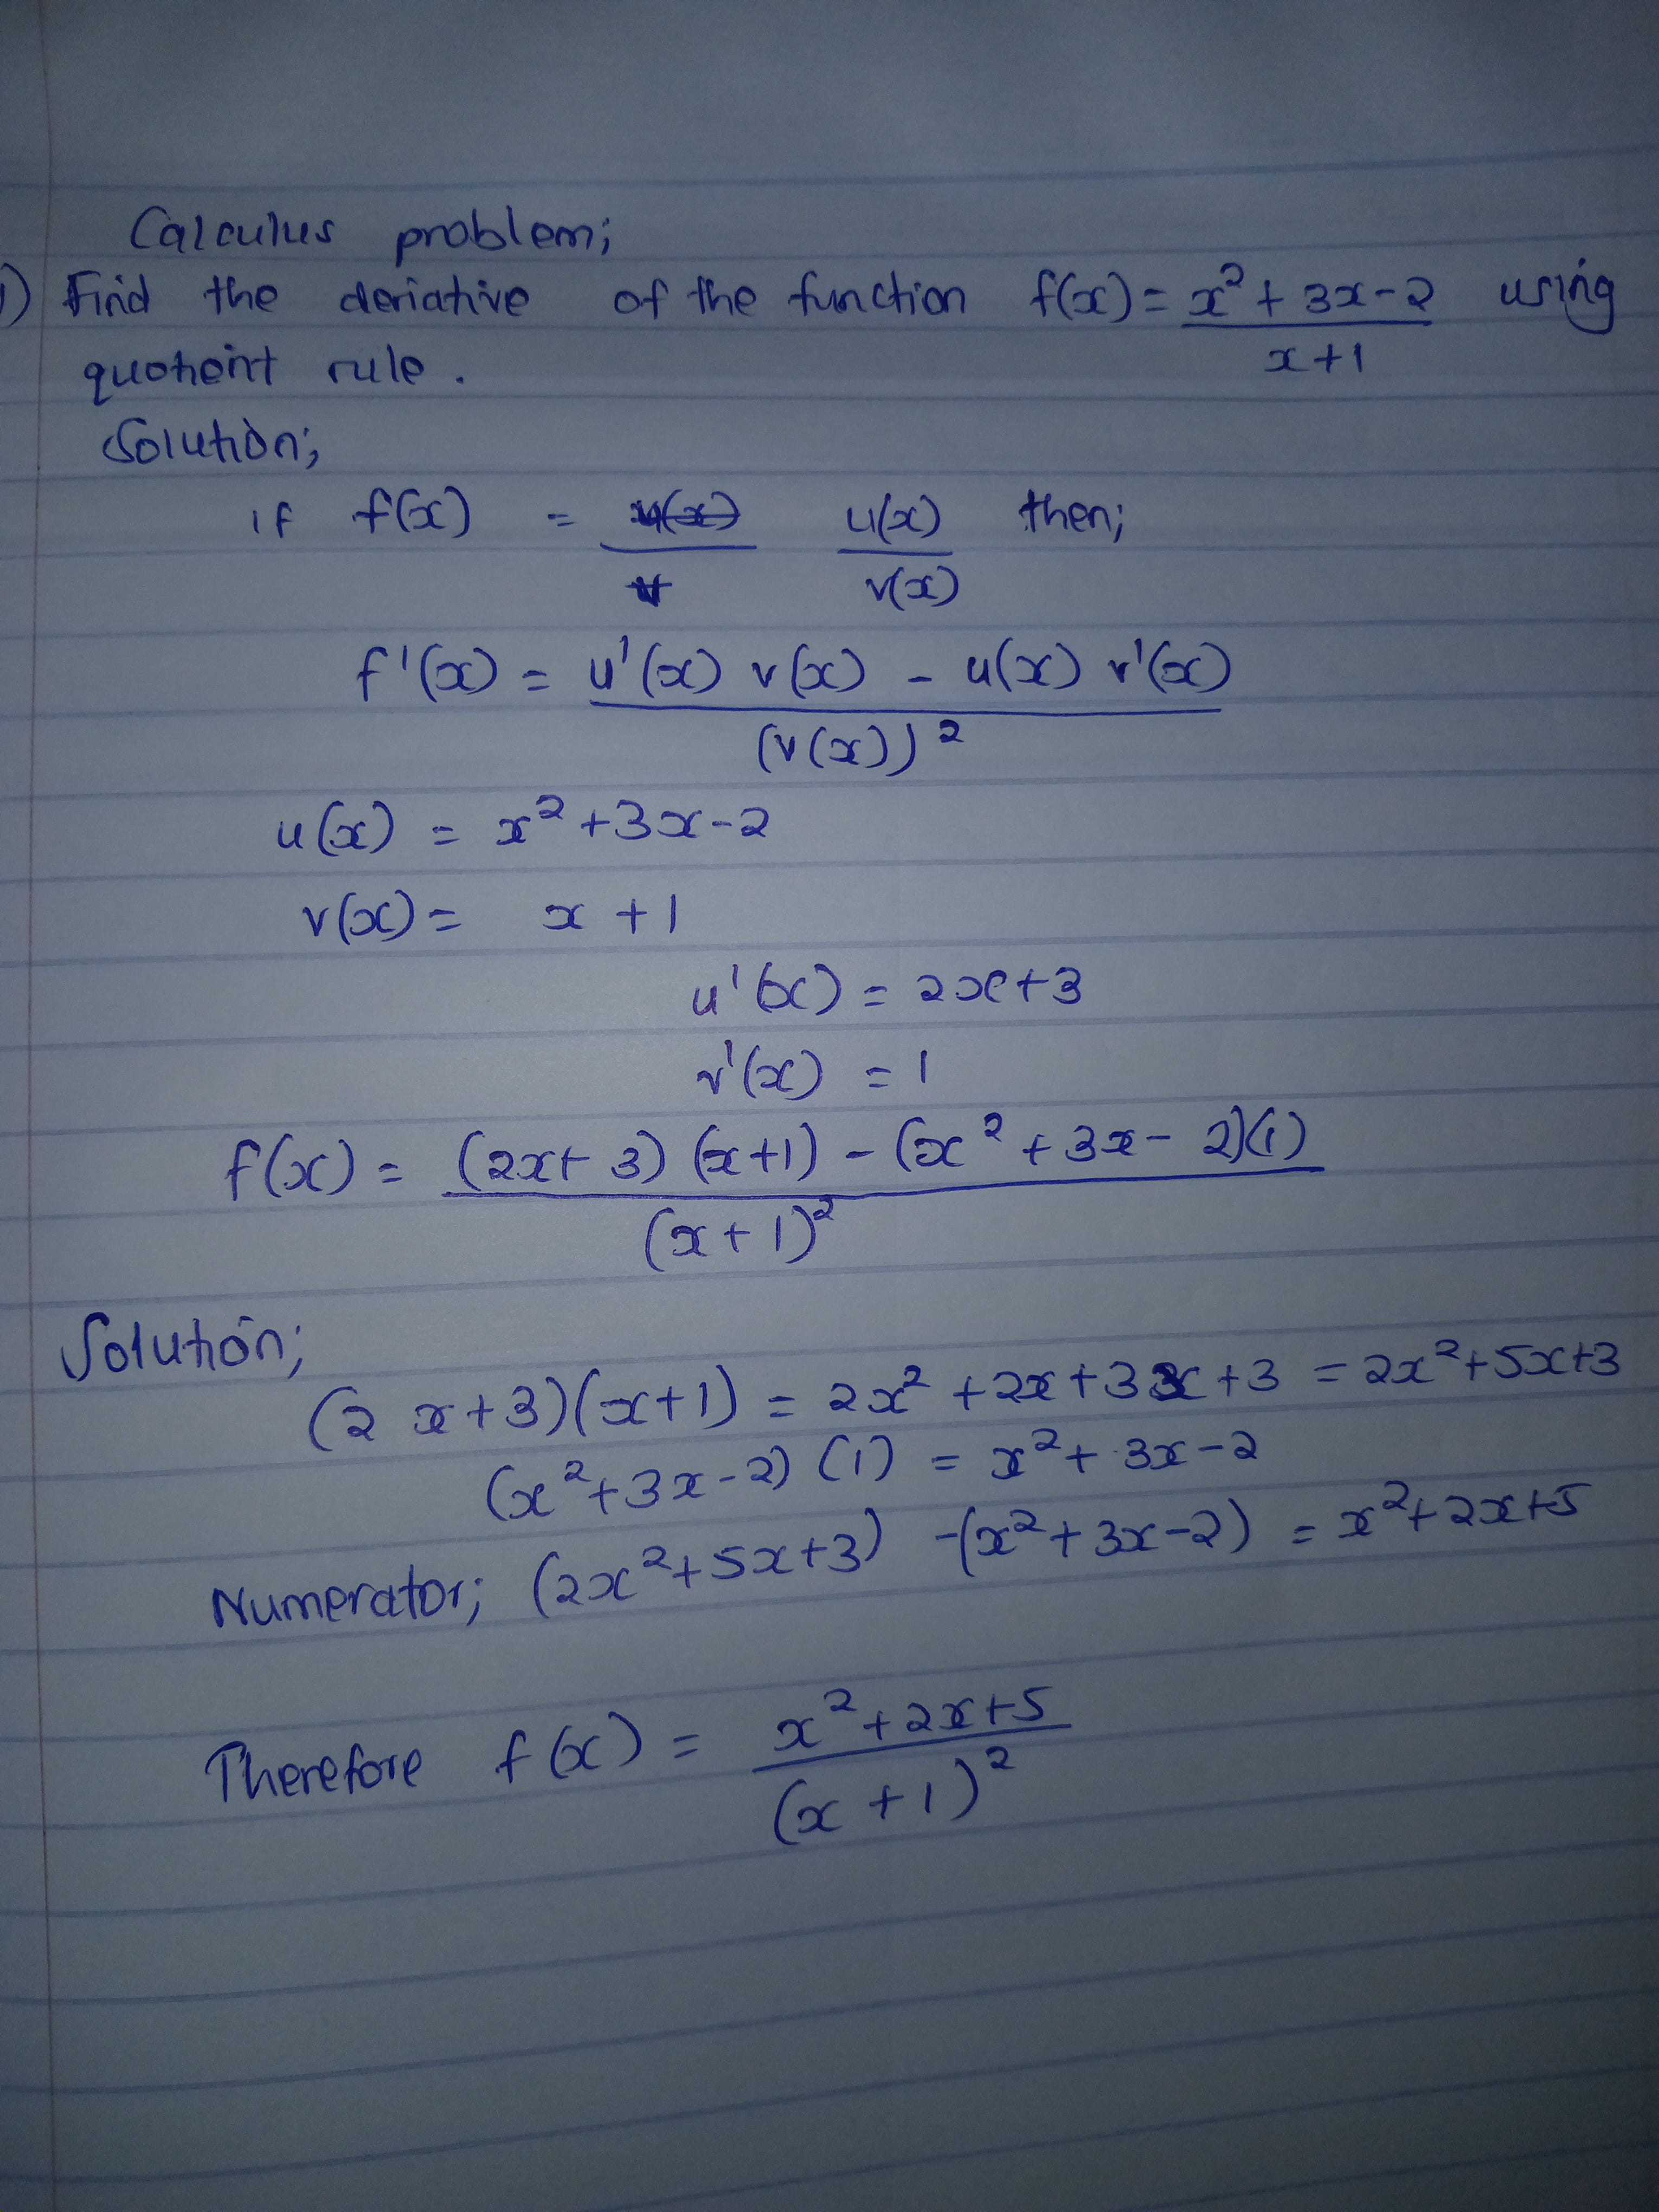 Calculus problem;
1) Find the deriative of the function f(x) = x² + 3x - 2 / x + 1 using
quotient rule.
Solution;
if f(x) = u(x) / v(x) then;
f'(x) = u'(x) v(x) - u(x) v'(x) / (v(x))²
u(x) = x² + 3x - 2
v(x) = x + 1
u'(x) = 2x + 3
v'(x) = 1
f(x) = (2x + 3) (x + 1) - (x² + 3x - 2)(1) / (x + 1)²
Solution;
(2x + 3)(x + 1) = 2x² + 2x + 3x + 3 = 2x² + 5x + 3
(x² + 3x - 2) (1) = x² + 3x - 2
Numerator; (2x² + 5x + 3) - (x² + 3x - 2) = x² + 2x + 5
Therefore f(x) = x² + 2x + 5 / (x + 1)²